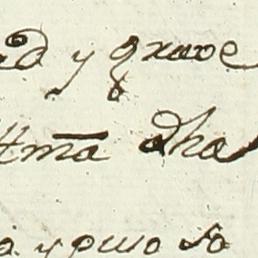 ad y grave
ttma dha
a y puso so